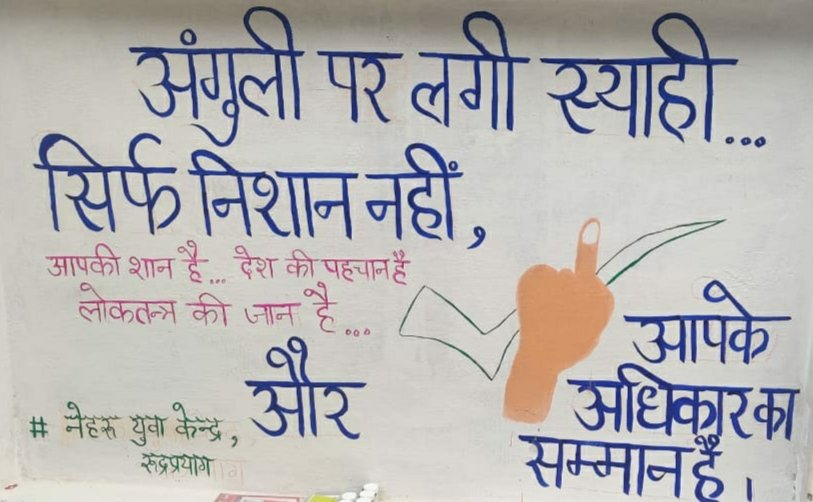 अंगुली पर लगी स्याही...
सिर्फ निशान नहीं,
आपकी शान है... देश की पहचान है
लोकतन्त्र की जान है...
और
आपके
अधिकार का
सम्मान है।
# नेहरू युवा केन्द्र,
रूद्रप्रयाग